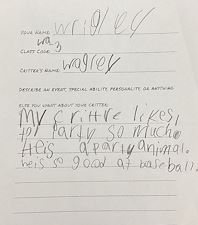 YOUR NAME: wrigley
wa 3
CLASS CODE:
CRITTER'S NAME: wagrey
DESCRIBE AN EVENT, SPECIAL ABILITY, PERSONALITY, OR ANYTHING
ELSE YOU WANT ABOUT YOUR CRITTER:
My crittre likes
to party so much.
He is a party animal.
he is so good at baseball.